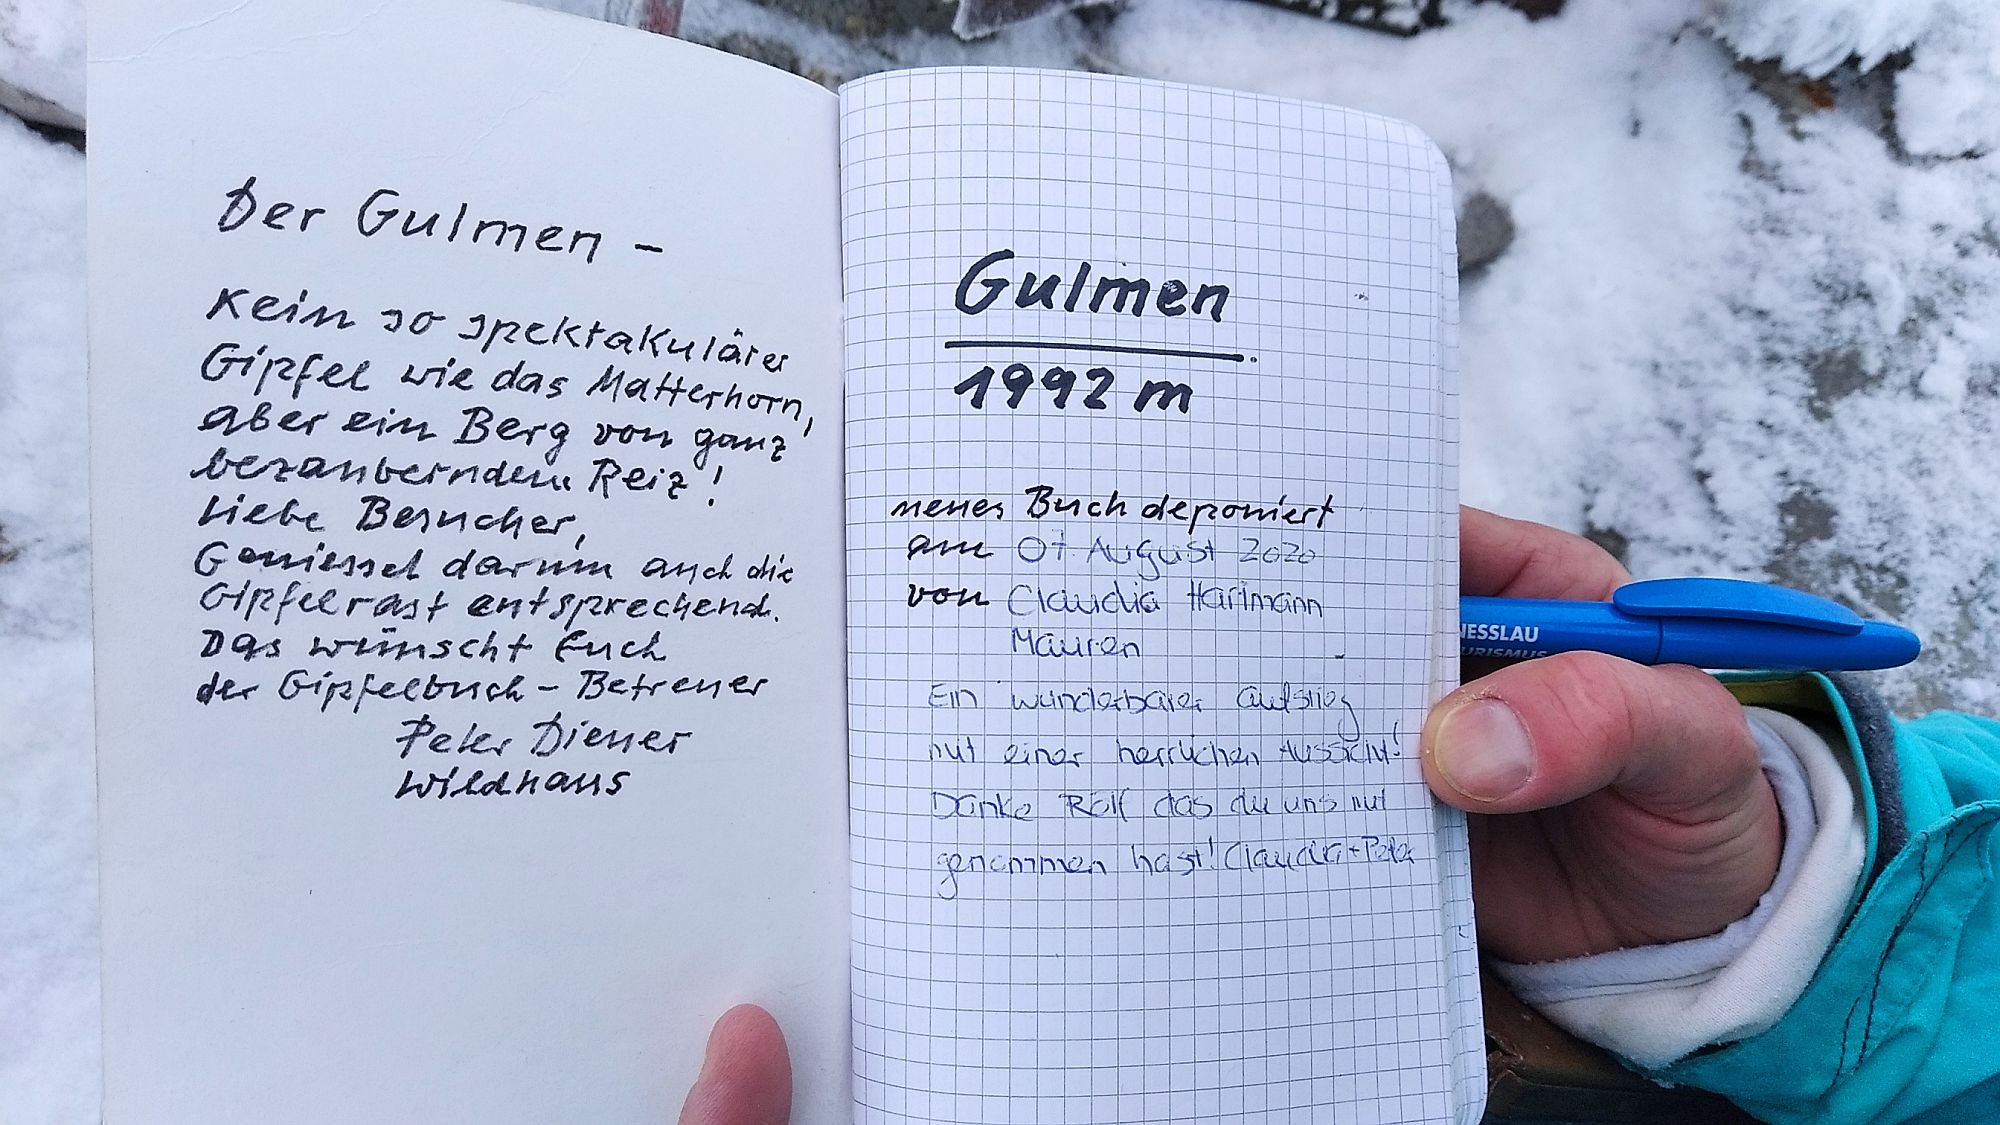 Der Gulmen –
Kein so spektakulärer
Gipfel wie das Matterhorn,
aber ein Berg von ganz
bezauberndem Reiz!
Liebe Besucher,
Geniesset darum auch die
Gipfelrast entsprechend.
Das wünscht Euch
der Gipfelbuch – Betreuer
Peter Diener
Wildhaus
Gulmen
1992 m
neues Buch deponiert
am 07. August 2020
von Claudia Hartmann
Mauren
Ein wunderbarer Aufstieg
mit einer herrlichen Aussicht!
Danke Rolf das du uns mit
genommen hast! Claudia + Peter
NESSLAU
TOURISMUS